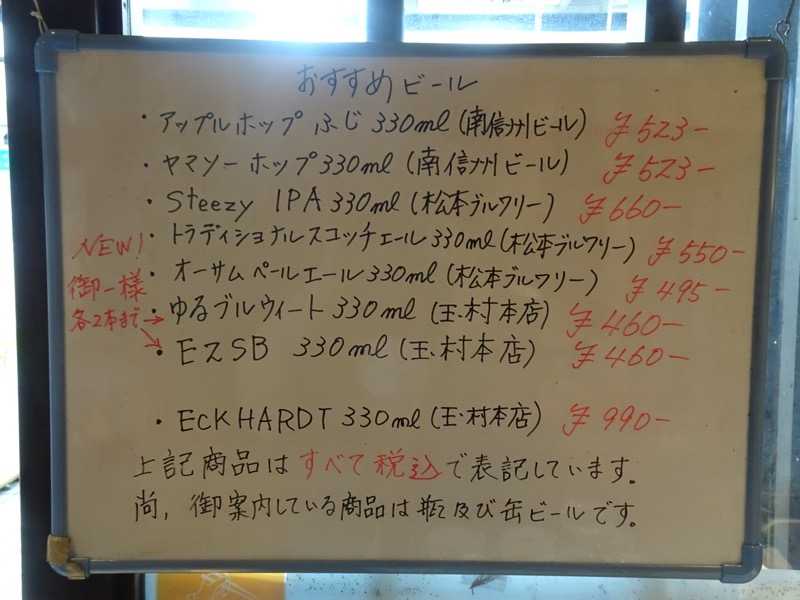 おすすめビール
・アップルホップ ふじ 330ml (南信州ビール) ¥523-
・ヤマソーホップ 330ml (南信州ビール) ¥523-
・Steezy IPA 330ml (松本ブルワリー) ¥660-
・トラディショナルスコッチエール 330ml (松本ブルワリー) ¥550-
・オーサムペールエール 330ml (松本ブルワリー) ¥495-
NEW!
御一様
各2本まで→
・ゆるブルウィート 330ml (玉村本店) ¥460-
・EスSB 330ml (玉村本店) ¥460-
・ECKHARDT 330ml (玉村本店) ¥990-
上記商品はすべて税込で表記しています。
尚, 御案内している商品は瓶及び缶ビールです。